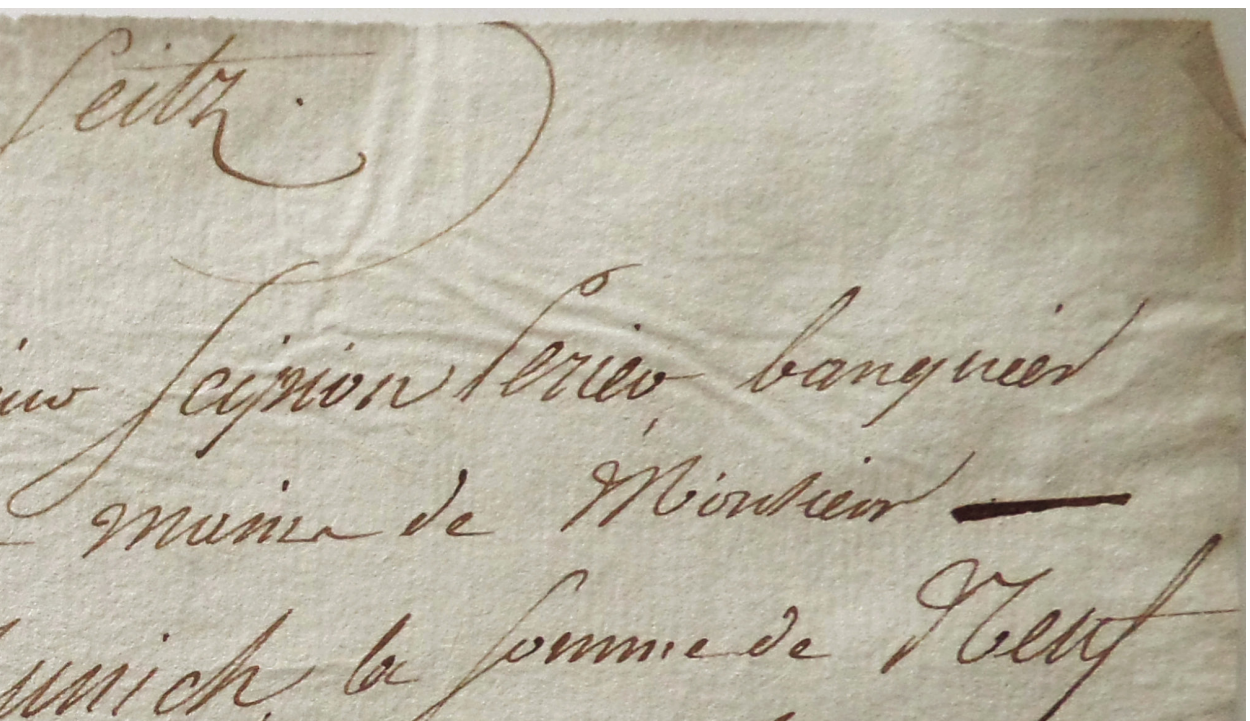 Seitz.
Scipion Perier banquier
mains de Monsieur —
unich, la somme de Neuf